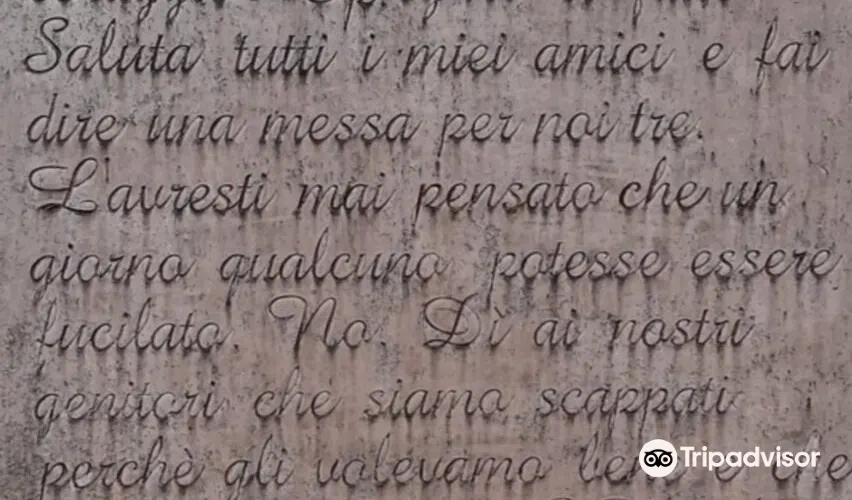 Saluta tutti i miei amici e fai
dire una messa per noi tre.
L'avresti mai pensato che un
giorno qualcuno potesse essere
fucilato. No. Dì ai nostri
genitori che siamo scappati
perchè gli volevamo bene e che
Tripadvisor